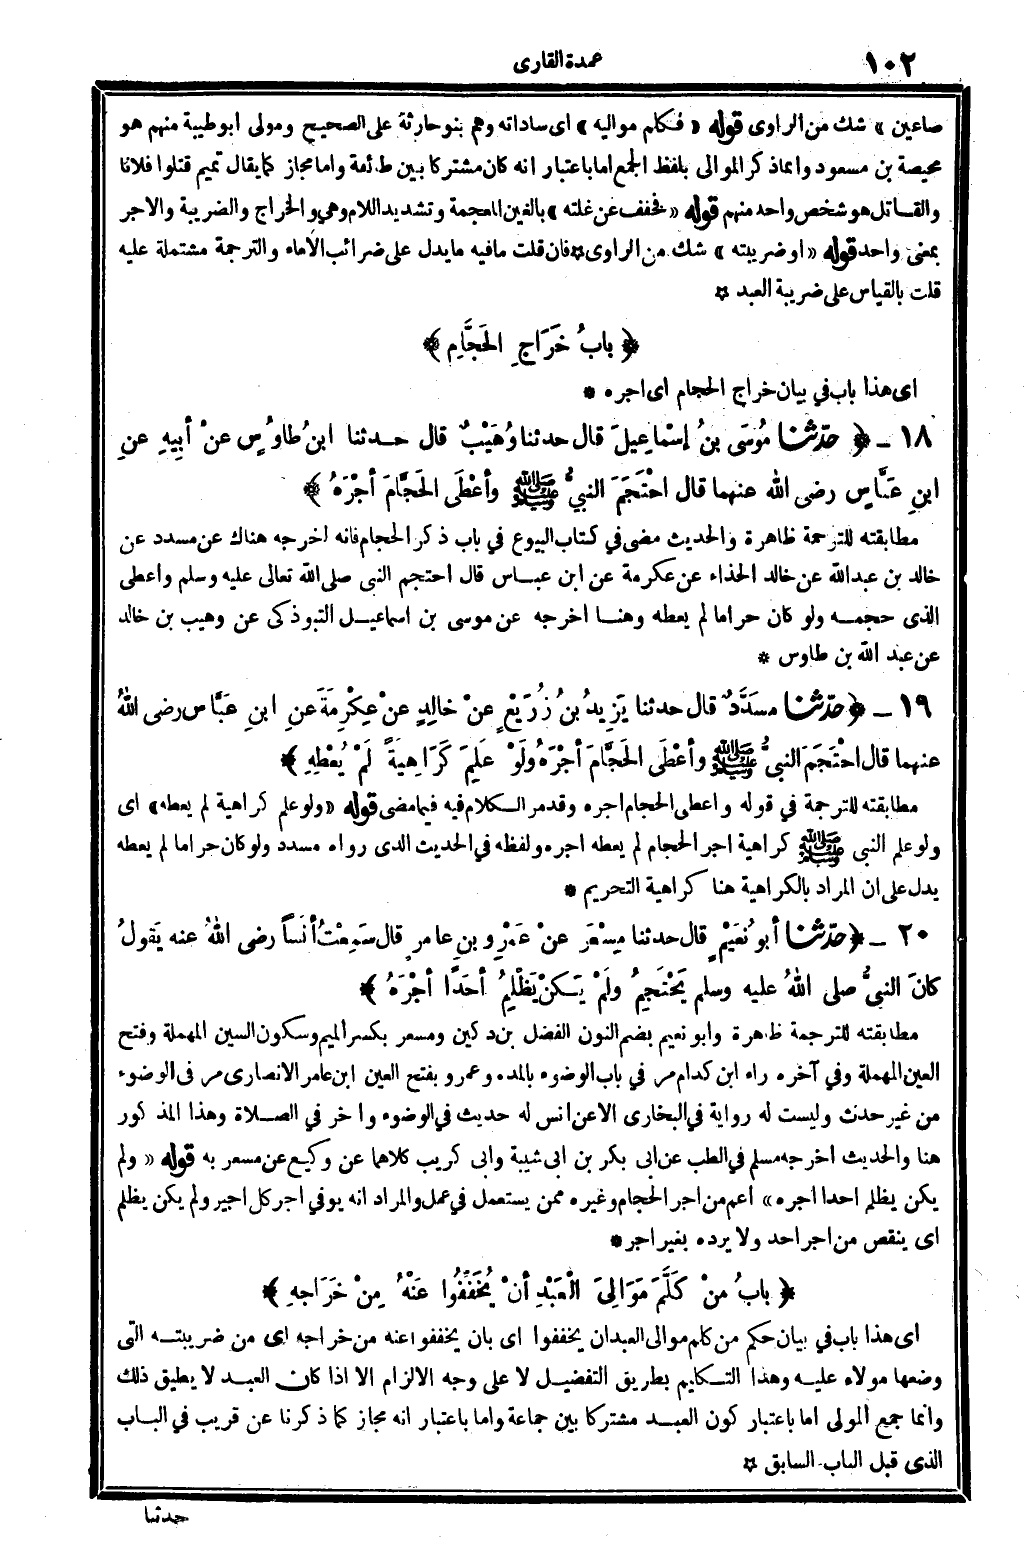 ١٠٢
عمدة القارى
صاعين » شك من الراوى قوله « فكلم مواليه » اى ساداته وهم بنو حارثة على الصحيح ومولى ابو طيبة منهم هو
محيصة بن مسعود وانما ذكر الموالى بلفظ الجمع اما باعتبار انه كان مشتركا بين طائفة واما مجاز كما يقال تميم قتلوا فلانا
والقاتل هو شخص واحد منهم قوله « فخفف عن غلته » بالغين المعجمة وتشديد اللام وهى والخراج والضريبة والاجر
بمعنى واحد قوله « او ضريبته » شك من الراوى ۞ فان قلت مافيه ما يدل على ضرائب الاماء والترجمة مشتملة عليه
قلت بالقياس على ضريبة العبد ۞
﴿ بابُ خَرَاجِ الحَجَّامِ ﴾
اى هذا باب في بيان خراج الحجام اى اجره *
١٨ ـ ﴿ حدّثنا مُوسَى بنُ إِسْماعِيلَ قال حدثنا وُهَيْبٌ قال حدثنا ابنُ طاوُسٍ عنْ أبِيهِ عنِ
ابنِ عَبَّاسٍ رضى الله عنهما قال احْتَجَمَ النبيُّ ﷺ وأعْطَى الحَجَّامَ أجْرَهُ ﴾
مطابقته للترجمة ظاهرة والحديث مضى في كتاب البيوع في باب ذكر الحجام فانه اخرجه هناك عن مسدد عن
خالد بن عبدالله عن خالد الحذاء عن عكرمة عن ابن عباس قال احتجم النبى صلى الله تعالى عليه وسلم واعطى
الذى حجمه ولو كان حراما لم يعطه وهنا اخرجه عن موسى بن اسماعيل التبوذكى عن وهيب بن خالد
عن عبد الله بن طاوس *
١٩ ـ ﴿ حدّثنا مسَدَّدٌ قال حدثنا يَزِيدُ بنُ زُرَيْعٍ عنْ خالِدٍ عنْ عِكْرِمَةَ عنِ ابنِ عَبَّاس رضى اللهُ
عنهما قال احْتَجَمَ النبيُّ ﷺ وأعْطَى الحَجَّامَ أجْرَهُ ولَوْ علِمَ كَرَاهِيةً لَمْ يُعْطِهِ ﴾
مطابقته للترجمة في قوله واعطى الحجام اجره وقد مر الكلام فيه فيما مضى قوله « ولو علم كراهية لم يعطه » اى
ولو علم النبى ﷺ كراهية اجر الحجام لم يعطه اجره ولفظه في الحديث الذى رواه مسدد ولو كان حراما لم يعطه
يدل على ان المراد بالكراهية هنا كراهية التحريم *
٢٠ ـ ﴿ حدّثنا أبو نُعَيْمٍ قال حدثنا مِسْعَرٌ عنْ عَمْرِو بنِ عامرٍ قال سَمِعْتُ أنَساً رضى اللهُ عنه يَقولُ
كانَ النبيُّ صلى اللهُ عليه وسلم يَحْتَجِمُ ولَمْ يَكنْ يَظْلِمُ أحَدًا أجْرَهُ ﴾
مطابقته للترجمة ظاهرة وابو نعيم بضم النون الفضل بن دكين ومسعر بكسر الميم وسكون السين المهملة وفتح
العين المهملة وفي آخره راء ابن كدام مر في باب الوضوء بالمد. وعمرو بفتح العين ابن عامر الانصارى مر فى الوضوء
من غير حدث وليست له رواية في البخارى الا عن انس له حديث في الوضوء واخر في الصلاة وهذا المذكور
هنا والحديث اخرجه مسلم في الطب عن ابى بكر بن ابى شيبة وابى كريب كلاهما عن وكيع عن مسعر به قوله « ولم
يكن يظلم احدا اجره » اعم من اجر الحجام وغيره ممن يستعمل في عمل والمراد انه يوفي اجر كل اجير ولم يكن يظلم
اى ينقص من اجر احد ولا يرده بغير اجر *
﴿ بابُ منْ كَلَّمَ مَوَالِىَ الْعَبْدِ أنْ يُخَفِّفُوا عَنْهُ مِنْ خَرَاجهِ ﴾
اى هذا باب في بيان حكم من كلم موالى العبد ان يخففوا اى بان يخففوا عنه من خراجه اى من ضريبته التى
وضعها مولاه عليه وهذا التكليم بطريق التفضيل لا على وجه الالزام الا اذا كان العبد لا يطيق ذلك
وانما جمع المولى اما باعتبار كون العبد مشتركا بين جماعة واما باعتبار انه مجاز كما ذكرنا عن قريب في الباب
الذى قبل الباب السابق ۞
حدثنا